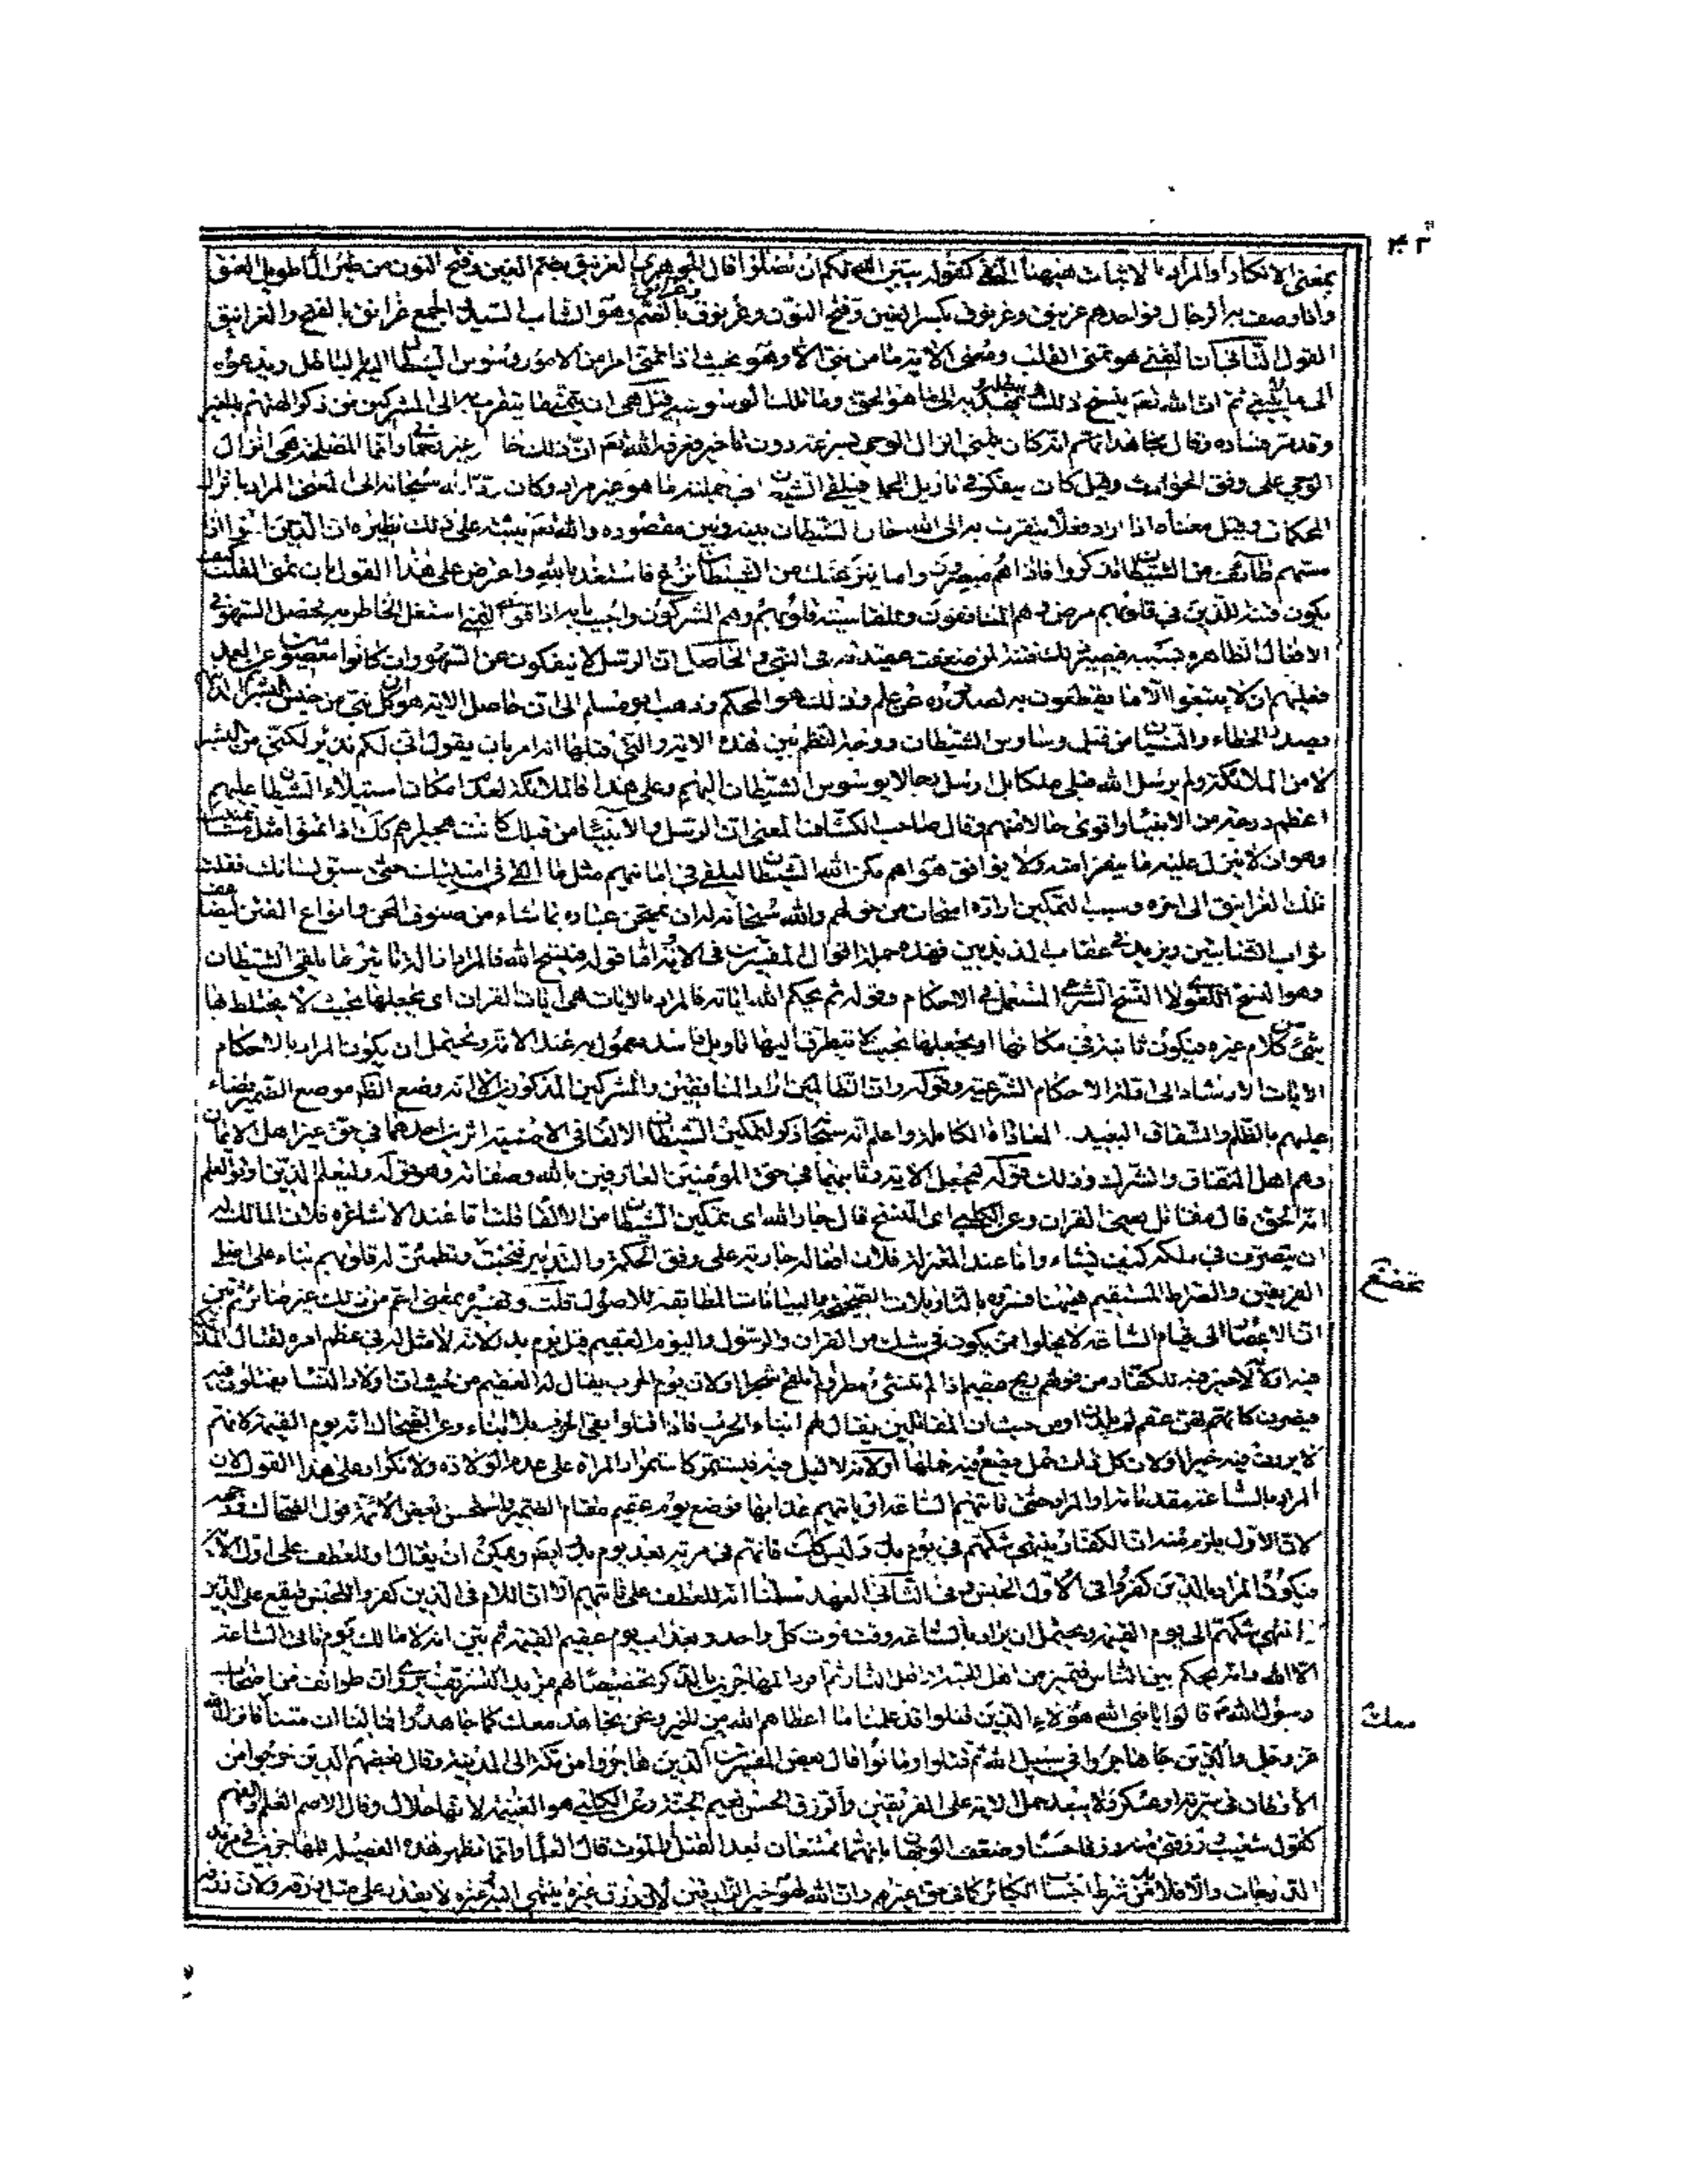 بمعنى الانكار او المراد بالاثبات ههنا النفي كقوله يبين الله لكم ان تضلوا قال الجوهري الغرنيق بضم الغين وفتح النون من طير الماء طويل العنق
واذا وصف به الرجال فواحدهم غرنيق وغرنوق بكسر الغين وفتح النون وغرنوق بالضم وهو الشاب السيد والجمع غرانق بالفتح والغرانيق
القول الثاني ان التمني هو تمني القلب ومعنى الاية ما من نبي الا وهو بحيث اذا تمنى امرا من الامور وسوس الشيطان اليه بالباطل ويدعوه
الى ما لا ينبغي ثم ان الله تعم ينسخ ذلك ويبطله ويهديه الى ما هو الحق وما تلك الوسوسة قيل هي ان يتمنى ما يتقرب به الى المشركين من ذكر الهتهم بالخير
وقد مر فساده وقال مجاهد انه كان يتمنى انزال الوحي بسرعة دون تاخير فعرفه الله تعم ان ذلك غير وانما المصلحة هي انزال
الوحي على وفق الحوادث وقيل كان يتفكر في تاويل المجمل فيلقي الشيطان في جملته ما هو غير مراد وكان رده الله سبحانه الى المعنى المراد بانزال
المحكمات وقيل معناه اذا اراد فعلا يتقرب به الى الله حال الشيطان بينه وبين مقصوده والله تعم يثبته على ذلك نظيره ان الذين اتقوا اذا
مسهم طائف من الشيطان تذكروا فاذا هم مبصرون واما ينزغنك من الشيطان نزغ فاستعذ بالله واعترض على هذا القول بان تمني القلب كيف
يكون فتنة للذين في قلوبهم مرض وهم المنافقون وللقاسية قلوبهم وهم المشركون واجيب بانه اذا قوي التمني اشتغل الخاطر به فحصل السهو في
الافعال الظاهرة بسببه فيصير ذلك فتنة لمن ضعفت عقيدته في النبي والحاصل ان الرسل لا ينفكون عن السهو وان كانوا معصومين عن العمد
فعليهم ان لا يتبعوا الا ما يقطعون به لصدوره عن علم وذلك هو المحكم وذهب ابو مسلم الى ان حاصل الاية هو ان كل نبي من جنس البشر الذين
بصدد الخطاء والنسيان من قبل وساوس الشيطان ووجه النظم بين هذه الاية والتي قبلها انه امر بان يقول اني لكم نذير لكني من البشر
لا من الملائكة ولم يرسل الله قبلي ملكا بل ارسل رجالا يوسوس الشيطان اليهم وعلى هذا فالملائكة لعدم امكان استيلاء الشيطان عليهم
اعظم درجة من الانبياء واقوى حالا منهم وقال صاحب الكشاف المعنى ان الرسل والانبياء من قبلك كانت هجيراهم كذلك اذا تمنوا مثل ما تمنيت
وهو ان لا ينزل عليه ما ينفر امته ولا يوافق هواهم مكن الله الشيطان ليلقي في امانيهم مثل ما القي في امنيتك حتى سبق لسانك فقلت
تلك الغرانيق الى اخره وسبب التمكين ارادة امتحان من حولهم والله سبحانه له ان يمتحن عباده بما شاء من صنوف المحن وانواع الفتن ليضاعف
ثواب الثابتين ويزيد في عقاب المذبذبين فهذه جملة اقوال المفسرين في الاية اما قوله فينسخ الله فالمراد ازالة تاثير ما يلقي الشيطان
وهو النسخ اللغوي لا النسخ الشرعي المستعمل في الاحكام وقوله ثم يحكم الله اياته فالمراد بالايات هي ايات القران اي يجعلها بحيث لا يختلط بها
شيء من كلام غيره فيكون ثابتة في مكانها او يجعلها بحيث لا يتطرق اليها تاويل فاسد معمول به عند الامة ويحتمل ان يكون المراد بالاحكام
الايات الارشاد الى ادلة الاحكام الشرعية وقوله وان الظالمين اراد المنافقين والمشركين المذكورين الا انه وضع الظاهر موضع الضمير قضاء
عليهم بالظلم والشقاق البعيد المعاداة الكاملة واعلم انه سبحانه ذكر لتمكين الشيطان الالقاء في الامنية اثرين احدهما في حق غير اهل الايمان
وهم اهل النفاق والشرك وذلك قوله ليجعل الاية وثانيهما في حق المؤمنين العارفين بالله وصفاته وهو قوله وليعلم الذين اوتوا العلم
انه الحق قال مقاتل يعني القران وعن الكلبي اي النسخ قال جار الله اي تمكين الشيطان من الالقاء قلت اما عند الاشاعرة فلان المالك له
ان يتصرف في ملكه كيف يشاء واما عند المعتزلة فلان افعاله جارية على وفق الحكمة والتدبير فتخبت وتطمئن له قلوبهم بناء على
الفريقين والصراط المستقيم ههنا فسروه بالتاويلات الصحيحة والبيانات المطابقة للاصول قلت وتفسيره بمعنى اعم من ذلك غير ضائر ثم بين
ان الاعصار الى قيام الساعة لا يخلوا ممن يكون في شك من القران والرسول واليوم العقيم قيل يوم بدر لانه لا مثل له في عظم امره لقتال الملائكة
فيه او لانه لا خير فيه للكفار من قولهم ريح عقيم اذا لم تنشئ مطرا ولم تلقح شجرا او لان يوم الحرب يقال له العقيم من حيث ان اولاد النساء يقتلون فيه
فيصرن كانهن عقم لم يلدن او من حيث ان المقاتلين يقال لهم ابناء الحرب فاذا قتلوا بقي الحرب بلا ابناء وعن الضحاك انه يوم القيمة لانهم
لا يرون فيه خيرا او لان كل ذات حمل تضع فيه حملها او لانه لا ليل فيه فيستمر كاستمرار المراة على عدم الولادة ولا تكرار على هذا القول لان
المراد بالساعة مقدماته او المراد حتى تاتيهم الساعة او ياتيهم عذابها فوضع يوم عقيم مقام الضمير واستحسن بعض الائمة قول الضحاك
لان الاول يلزم منه ان الكفار ينتهي شكهم في يوم بدر وليس كذلك فانهم في مرية بعد يوم بدر ايضا ويمكن ان يقال او للعطف على اول الاية
فيكون المراد بالذين كفروا في الاول الجنس وفي الثاني العهد سلمنا انه للعطف على تاتيهم الا ان اللام في الذين كفروا للجنس فيقع على الذين
انتهى شكهم الى يوم القيمة ويحتمل ان يراد بالساعة وقت موت كل واحد وبعذاب يوم عقيم القيمة ثم بين انه لا مالك يوم تاتي الساعة
الا الله وانه يحكم بين الناس فيميز بين اهل الجنة واهل النار ثم افرد المهاجرين بالذكر تخصيصا لهم بمزيد التشريف يروى ان طوائف من اصحاب
رسول الله ص قالوا يا نبي الله هؤلاء الذين قتلوا قد علمنا ما اعطاهم الله من الخير ونحن نجاهد معك كما جاهدوا فما لنا ان متنا فانزل الله
عز وجل والذين هاجروا في سبيل الله ثم قتلوا او ماتوا قال بعض المفسرين الذين هاجروا من مكة الى المدينة وقال بعضهم الذين خرجوا من
الاوطان في سرية او عسكر ولا يبعد حمل الاية على الفريقين والرزق الحسن نعيم الجنة وعن الكلبي هو الغنيمة لانها حلال وقال الاصم العلم والفهم
كقول شعيب ورزقني منه رزقا حسنا وضعف الوجهان بانهما ممتنعان بعد القتل والموت قال العلماء وانما تظهر هذه الفضيلة للمهاجرين في مزيد
الدرجات والا فلا بد من شرط اجتناب الكبائر كما في حق غيرهم وان الله لهو خير الرازقين لان رزق غيره ينتهي اليه وغيره لا يقدر على مثل رزقه ولان رزقه